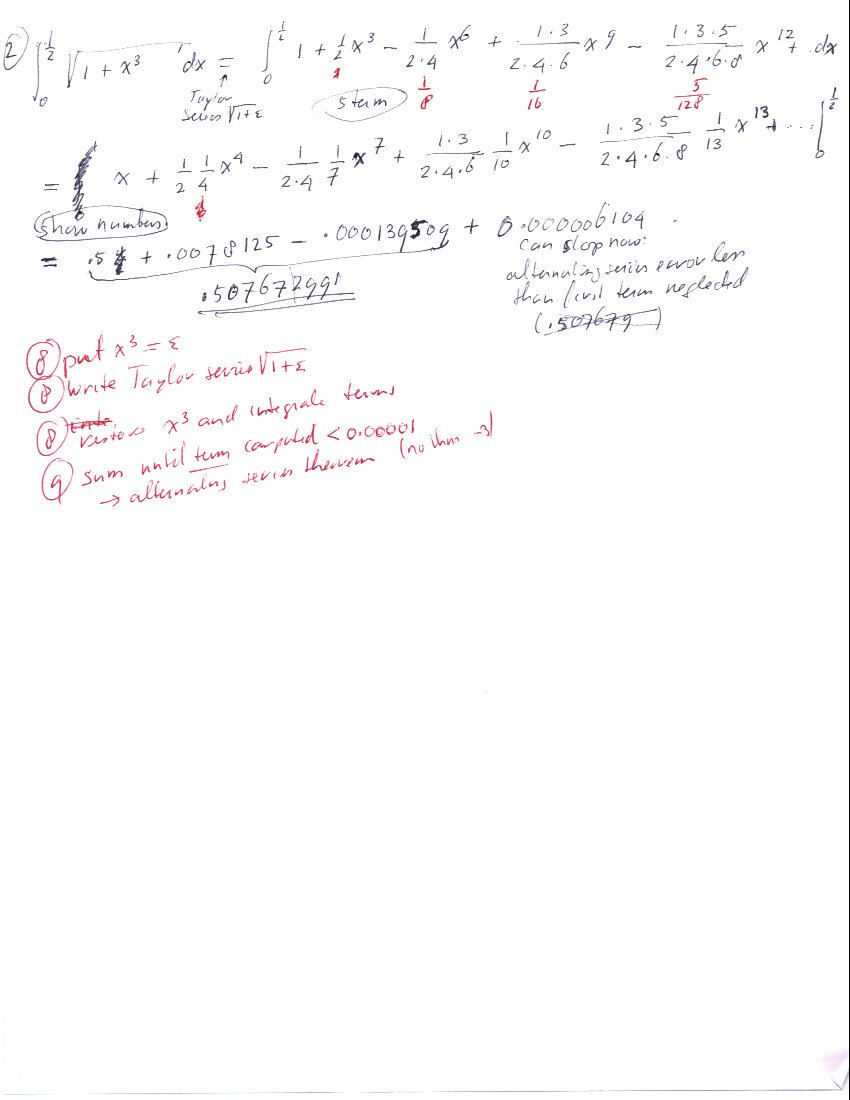 ② ∫₀^{1/2} √(1 + x³) dx = ∫₀^{1/2} 1 + 1/2 x³ − 1/(2·4) x⁶ + (1·3)/(2·4·6) x⁹ − (1·3·5)/(2·4·6·8) x¹² + dx
↑ Taylor series √(1+ε)
5 term
1/8 1/16 5/128
= x + 1/2 1/4 x⁴ − 1/(2·4) 1/7 x⁷ + (1·3)/(2·4·6) 1/10 x¹⁰ − (1·3·5)/(2·4·6·8) 1/13 x¹³ + ... ]₀^{1/2}
Show numbers
= .5 + .0078125 − .000139509 + 0.000006104
.507672991
can stop now:
alternating series error less
than first term neglected
(.507679)
⑧ put x³ = ε
⑧ write Taylor series √(1+ε)
⑧ restore x³ and integrate terms
⑨ sum until term computed < 0.00001
→ alternating series theorem (no thm −3)